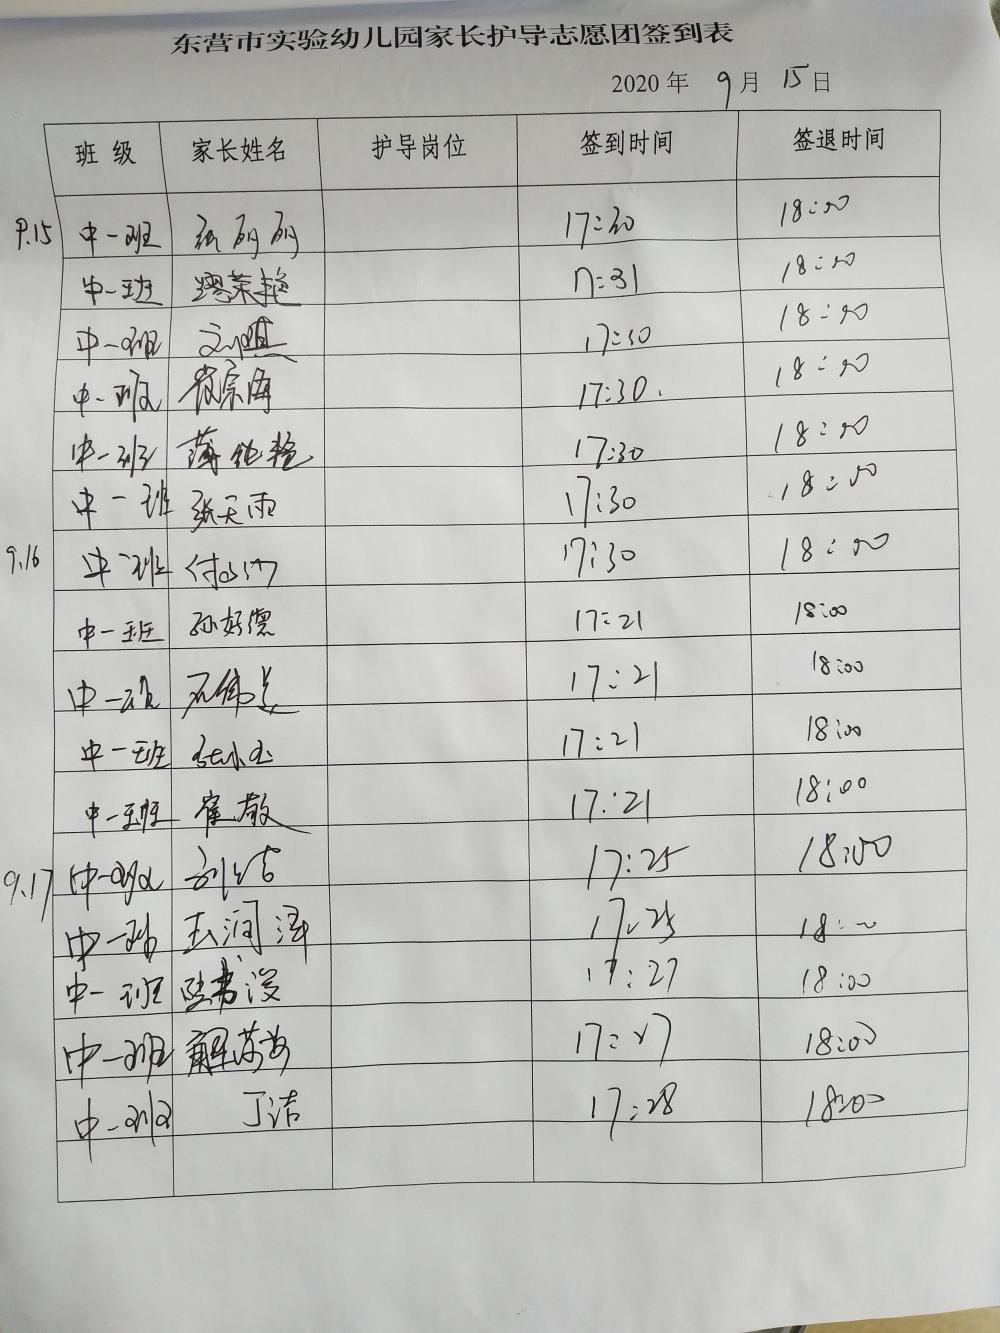 东营市实验幼儿园家长护导志愿团签到表
2020年 9月 15日
班级 家长姓名 护导岗位 签到时间 签退时间
9.15 中一班 张丽丽 17:30 18:00
中一班 17:31 18:00
中一班 17:30 18:00
中一班 17:30. 18:00
中一班 17:30 18:00
中一班 张天雨 17:30 18:00
9.16 中一班 17:30 18:00
中一班 孙好德 17:21 18:00
中一班 17:21 18:00
中一班 17:21 18:00
中一班 崔敬 17:21 18:00
9.17 中一班 刘洁 17:25 18:00
中一班 17:25 18:00
中一班 17:27 18:00
中一班 17:27 18:00
中一班 丁洁 17:28 18:00